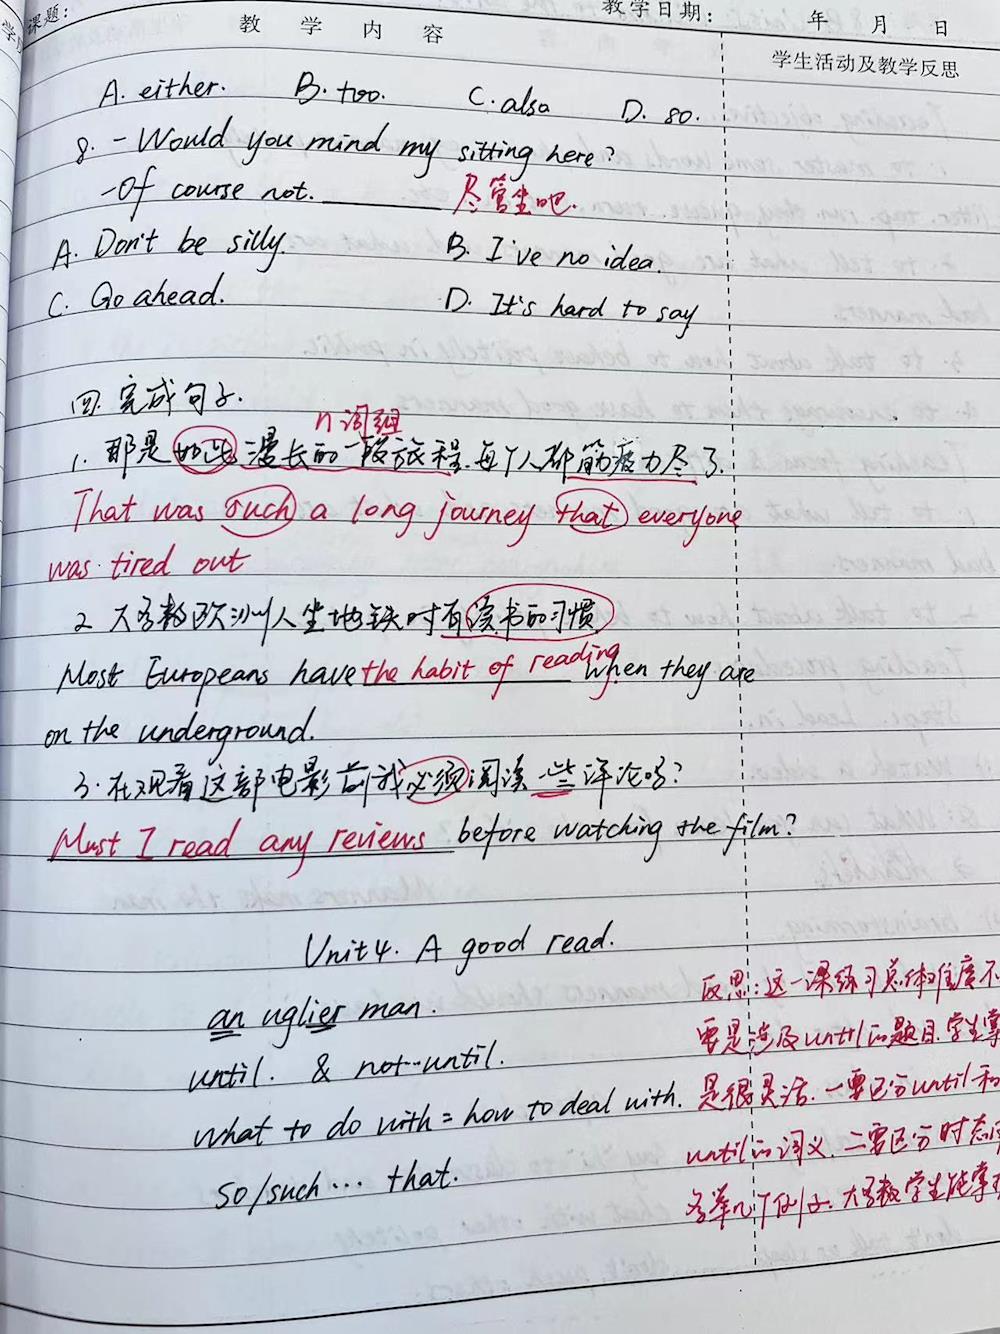 课题：
教学日期： 年 月 日
教 学 内 容
学生活动及教学反思
A. either. B. too. C. also D. so.
8. - Would you mind my sitting here?
- Of course not. ________ 尽管坐吧.
A. Don't be silly. B. I've no idea.
C. Go ahead. D. It's hard to say
四. 完成句子.
n词组
1. 那是如此漫长的一段旅程,每个人都筋疲力尽了.
That was such a long journey that everyone
was tired out
2. 大多数欧洲人坐地铁时有读书的习惯.
Most Europeans have the habit of reading when they are
on the underground.
3. 在观看这部电影前我必须阅读一些评论吗?
Must I read any reviews before watching the film?
Unit 4. A good read.
an uglier man.
until. & not...until.
what to do with = how to deal with.
so/such... that.
反思:这一课练习总体难度不
要是涉及until的题目.学生掌
是很灵活.一要区分until和
until的词义.二要区分时态
各举几个例子.大多数学生能掌